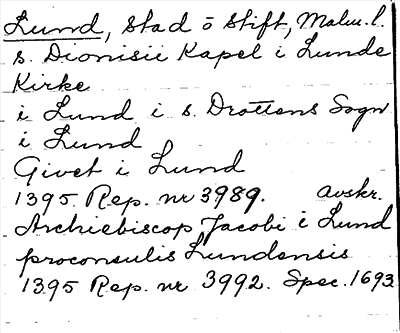 Lund, Stad ō Stift, Malm. l.
s. Dionisii Kapel i Lunde
Kirke
i Lund i s. Drottens Sogn
i Lund
Givet i Lund
1395 Rep. nr 3989. avskr.
Archiebiscop Jacobi i Lund
proconsulis Lundensis
1395 Rep. nr 3992. Spec. 1693